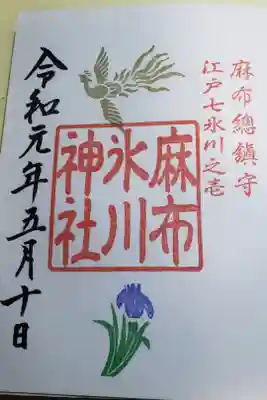 麻布總鎮守
江戸七氷川之壱
麻布
氷川
神社
令和元年五月十日